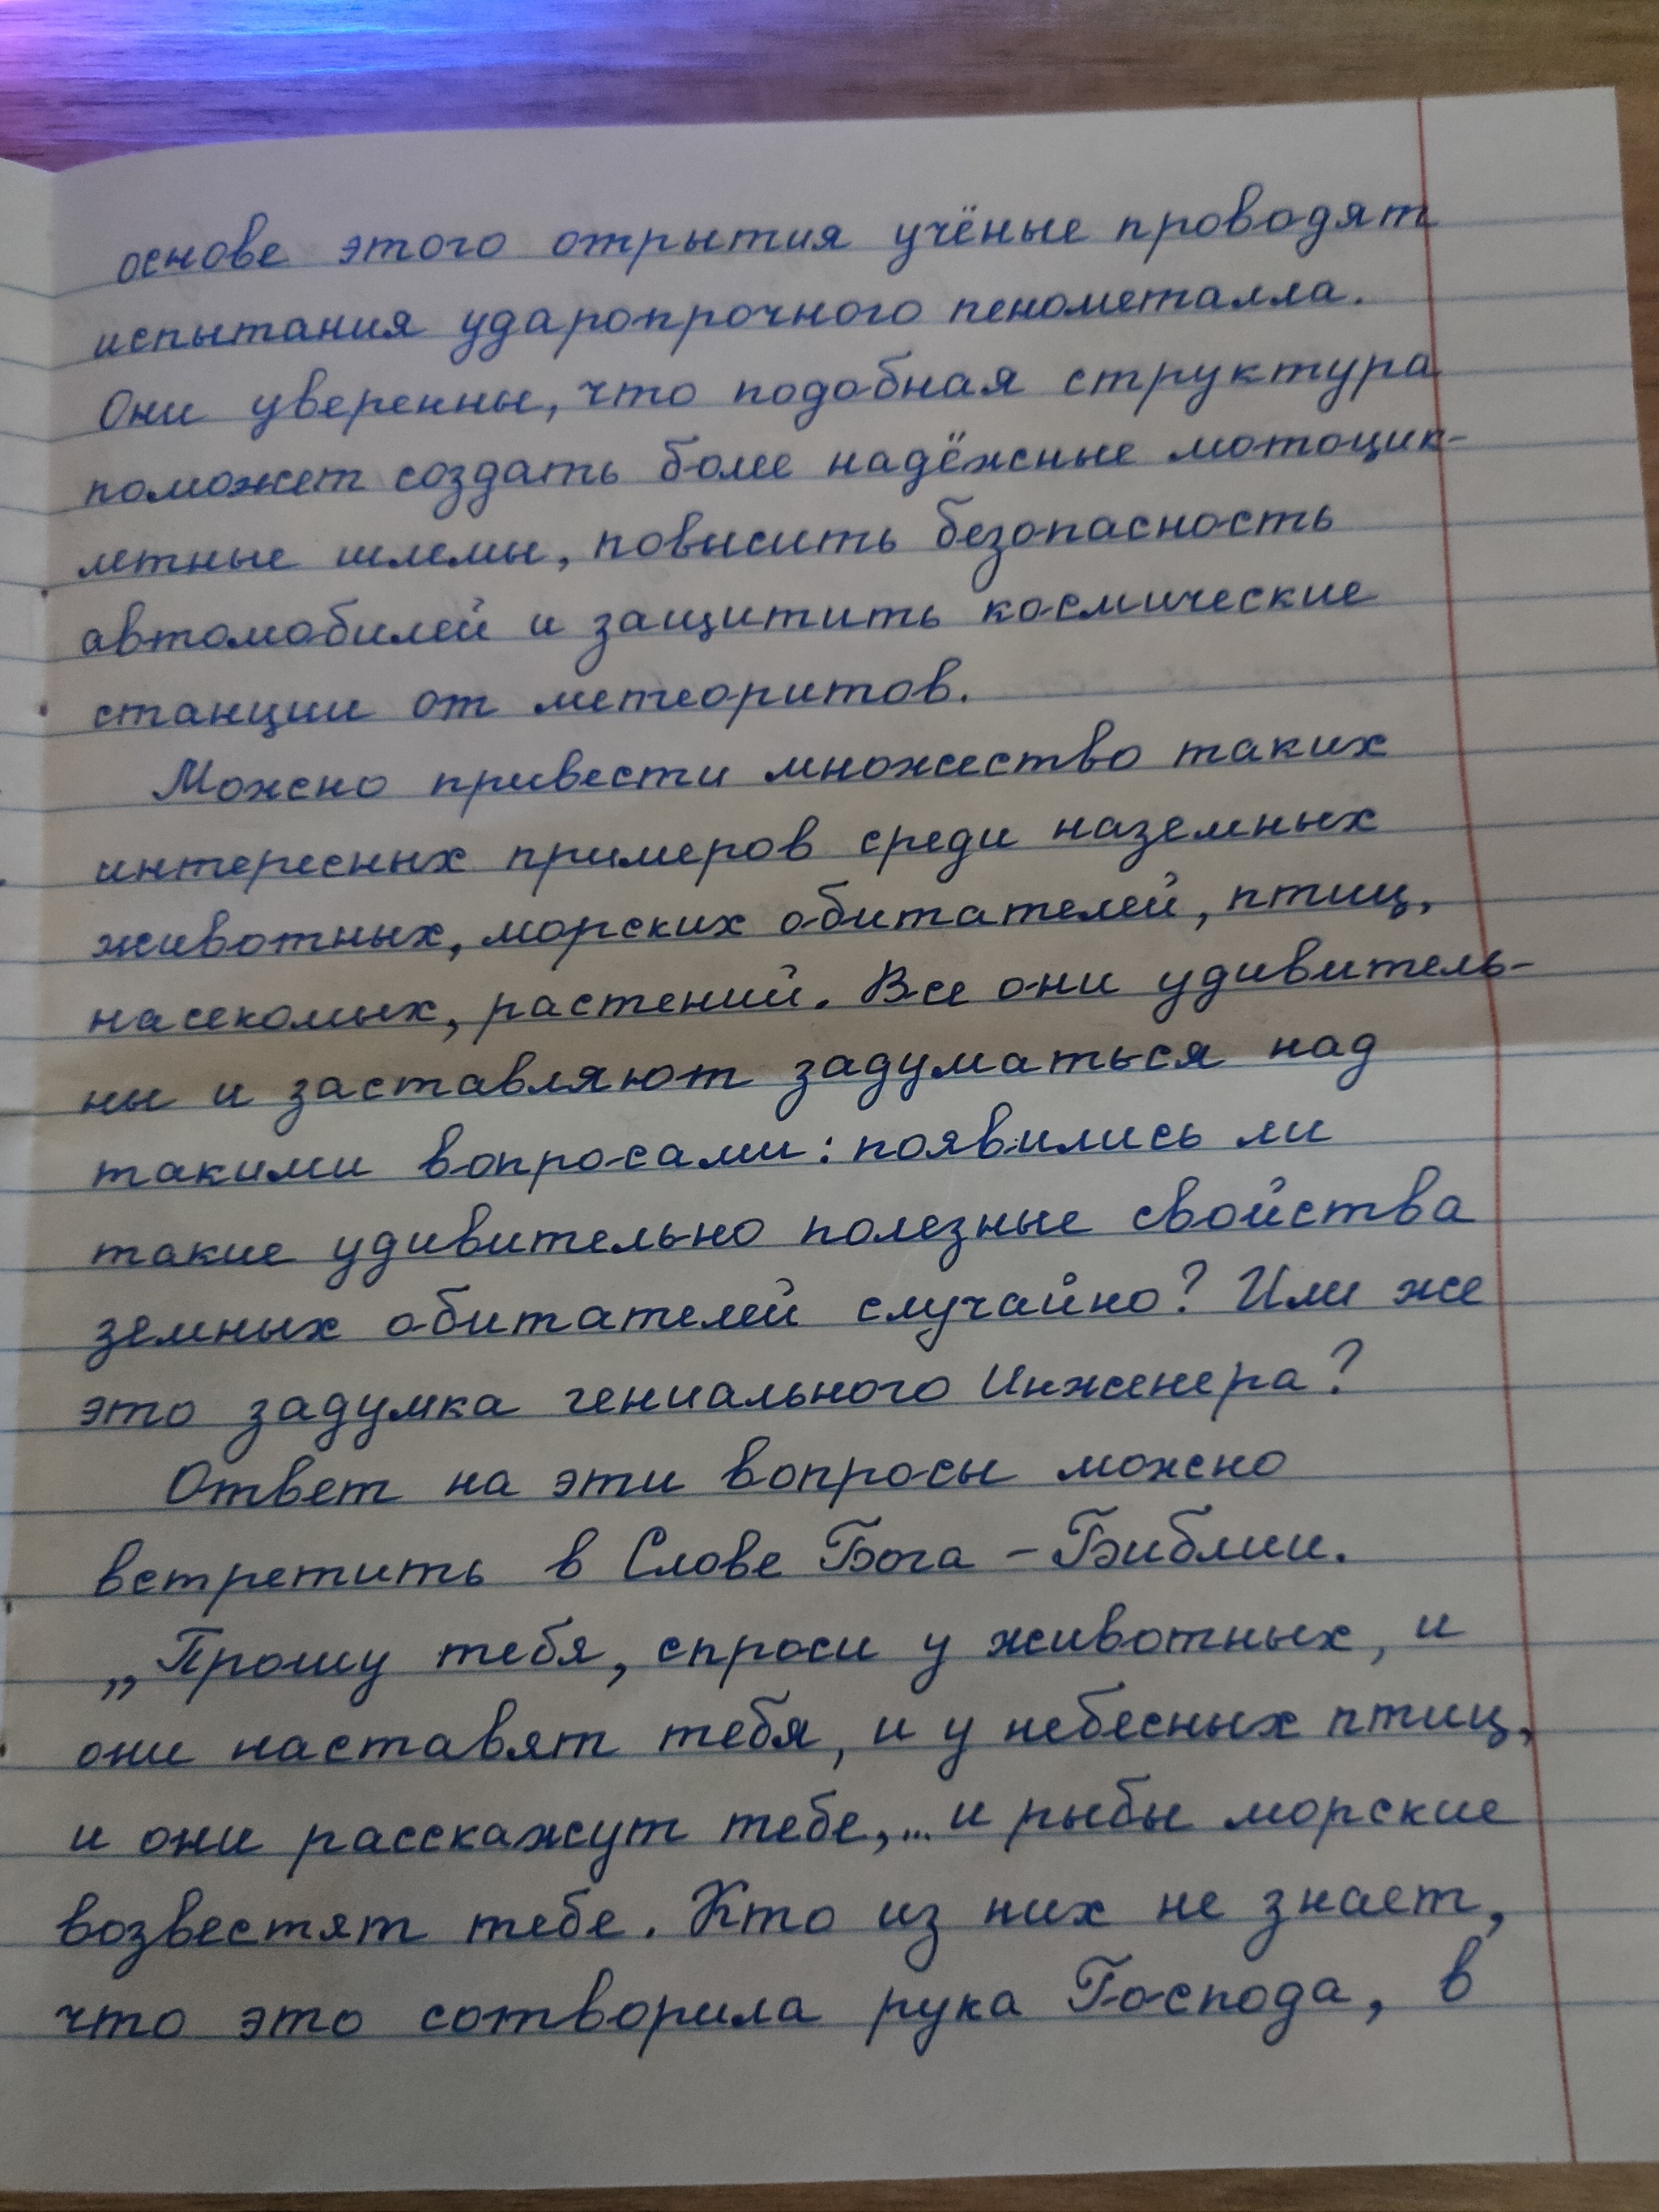 основе этого отрытия учёные проводят
испытания ударопрочного пенометалла.
Они уверенны, что подобная структура
поможет создать более надёжные мотоцик-
летные шлемы, повысить безопасность
автомобилей и защитить космические
станции от метеоритов.
Можно привести множество таких
интересных примеров среди наземных
животных, морских обитателей, птиц,
насекомых, растений. Все они удивитель-
ны и заставляют задуматься над
такими вопросами: появились ли
такие удивительно полезные свойства
земных обитателей случайно? Или же
это задумка гениального Инженера?
Ответ на эти вопросы можно
встретить в Слове Бога – Библии.
„Прошу тебя, спроси у животных, и
они наставят тебя, и у небесных птиц,
и они расскажут тебе,... и рыбы морские
возвестят тебе. Кто из них не знает,
что это сотворила рука Господа, в